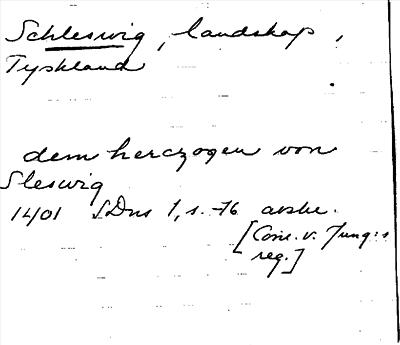 Schleswig, landskap,
Tyskland
dem herczogen von
Sleswig
1401 SDns 1, s. 76 avskr.
[Conr. v. Jung:s
reg.]